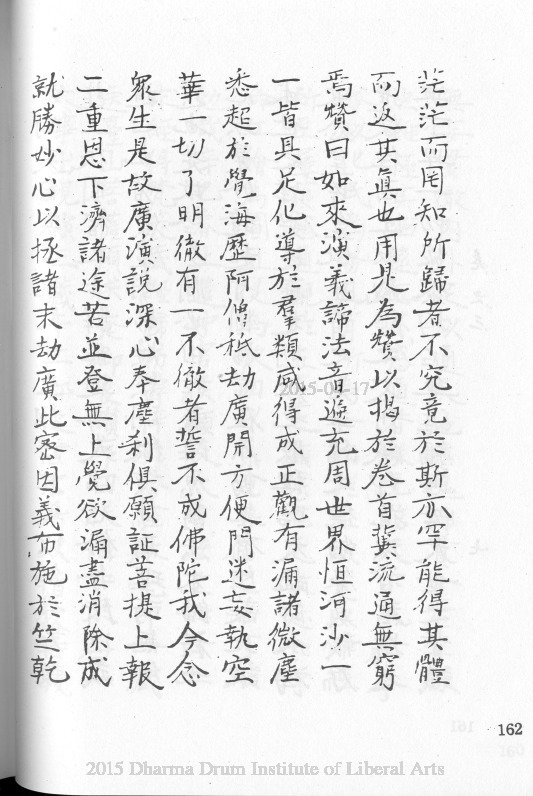 茫茫而罔知所歸者不究竟於斯亦罕能得其體
而返其真也用是為贊以揭於卷首冀流通無窮
焉贊曰如來演義諦法音遍充周世界恒河沙一
一皆具足化導於羣類咸得成正觀有漏諸微塵
悉超於覺海歷阿僧秪劫廣開方便門迷妄執空
華一切了明徹有一不徹者誓不成佛陀我今念
衆生是故廣演說深心奉塵刹俱願証菩提上報
二重恩下濟諸途苦並登無上覺欲漏盡消除成
就勝妙心以拯諸末劫廣此密因義布施於竺乾
162
2015-04-17
2015 Dharma Drum Institute of Liberal Arts